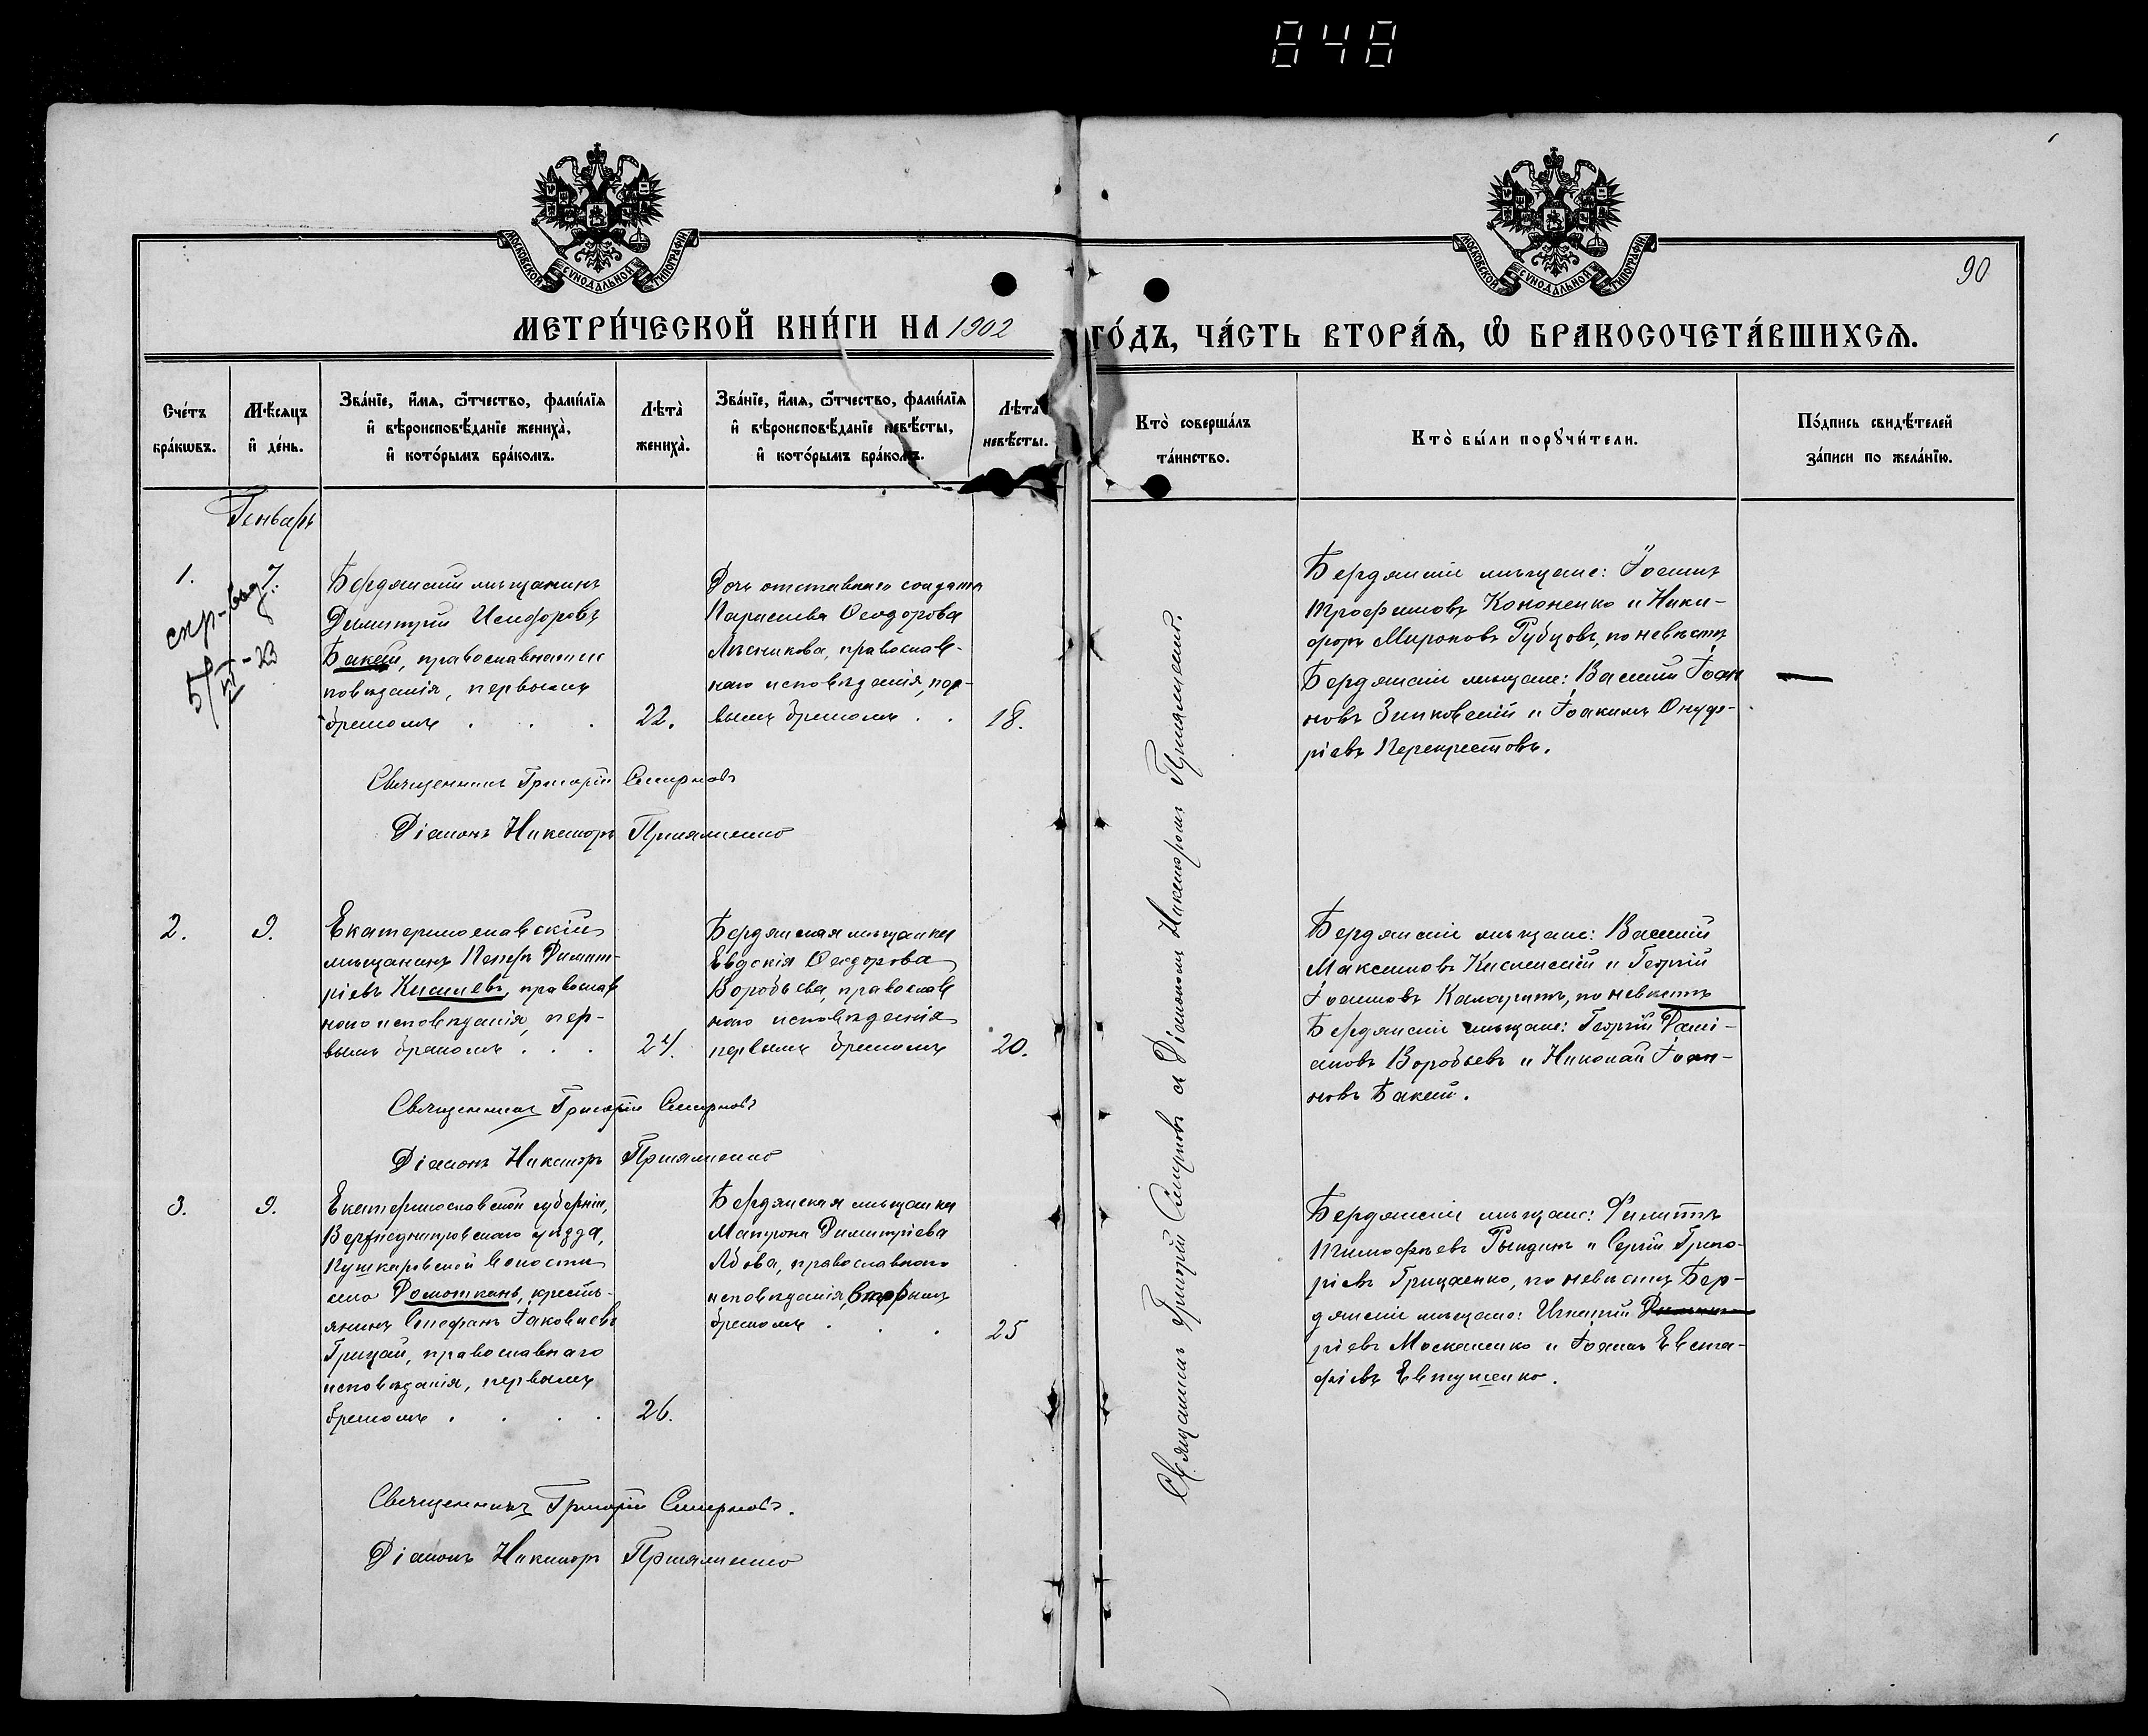 848
МОСКОВСКОЙ СѴНОДАЛЬНОЙ ТИПОГРАФІИ
МОСКОВСКОЙ СѴНОДАЛЬНОЙ ТИПОГРАФІИ
90
МЕТРИ́ЧЕСКОЙ КНИ́ГИ НА 1902 ГО́ДЪ, ЧА́СТЬ ВТОРА́Ѧ, Ѡ҆ БРАКОСОЧЕТА́ВШИХСѦ.
Сче́тъ
бра́кѡвъ.
Мѣ́сяцъ
и҆ де́нь.
Зва́нїе, и҆́мя, ѻ҆́тчество, фами́лїя
и҆ вѣроисповѣ́данїе жениха̀,
и҆ кото́рымъ бра́комъ.
Лѣта̀
жениха̀.
Зва́нїе, и҆́мя, ѻ҆́тчество, фами́лїя
и҆ вѣроисповѣ́данїе невѣ́сты,
и҆ кото́рымъ бра́комъ.
Лѣта̀
невѣ́сты.
Кто̀ соверша́лъ
та́инство.
Кто̀ бы́ли порꙋчи́тели.
По́дпись свидѣ́телей
за́писи по жела́нїю.
Генварь
1.
7.
Бердянскій мѣщанинъ
Димитрій Исидоровъ
Бакай, православнаго ис
повѣданія, первымъ
бракомъ . . .
22.
Дочь отставнаго солдата
Параскева Ѳеодорова
Лѣсникова, православ-
наго исповѣданія, пер-
вымъ бракомъ . .
18.
Бердянскіе мѣщане: Іоаннъ
Трофимовъ Кононенко и Ники-
форъ Мироновъ Рубцовъ, по невѣстѣ
Бердянскіе мѣщане: Василій Іоан
новъ Зинковскій и Іоакимъ Онуф-
ріевъ Перекрестовъ.
Священникъ Григорій Смирновъ
Діаконъ Никаноръ
Священникъ Григорій Смирновъ съ Діакономъ Никаноромъ
2.
9.
Екатеринославскій
мѣщанинъ Петръ Димит-
ріевъ Киселевъ, православ
наго исповѣданія, пер-
вымъ бракомъ . . .
24.
Бердянская мѣщанка
Евдокія Ѳеодорова
Воробьева, православ
наго исповѣданія
первымъ бракомъ
20.
Бердянскіе мѣщане: Василій
Максимовъ и Георгій
Іоанновъ по невѣстѣ
Бердянскіе мѣщане: Георгій Дамі-
ановъ Воробьевъ и Николай Іоан-
новъ Бакай.
Священникъ Григорій Смирновъ
Діаконъ Никаноръ
3.
9.
Екатеринославской губерніи,
Верхнеднѣпровскаго уѣзда,
Пушкаровской волости
села Домоткань, кресть-
янинъ Стефанъ Іаковлевъ
Грицай, православнаго
исповѣданія, первымъ
бракомъ . . . .
26.
Бердянская мѣщанка
Матрона Димитріева
православнаго
исповѣданія, вторымъ
бракомъ . . .
25
Бердянскіе мѣщане: Филиппъ
Тимофѣевъ Рындинъ и Сергій Григо-
ріевъ Грицаенко, по невѣстѣ Бер-
дянскіе мѣщане: Игнатій
ріевъ Москаленко и Іоаннъ Евста-
фіевъ Евтушенко.
Священникъ Григорій Смирновъ.
Діаконъ Никаноръ